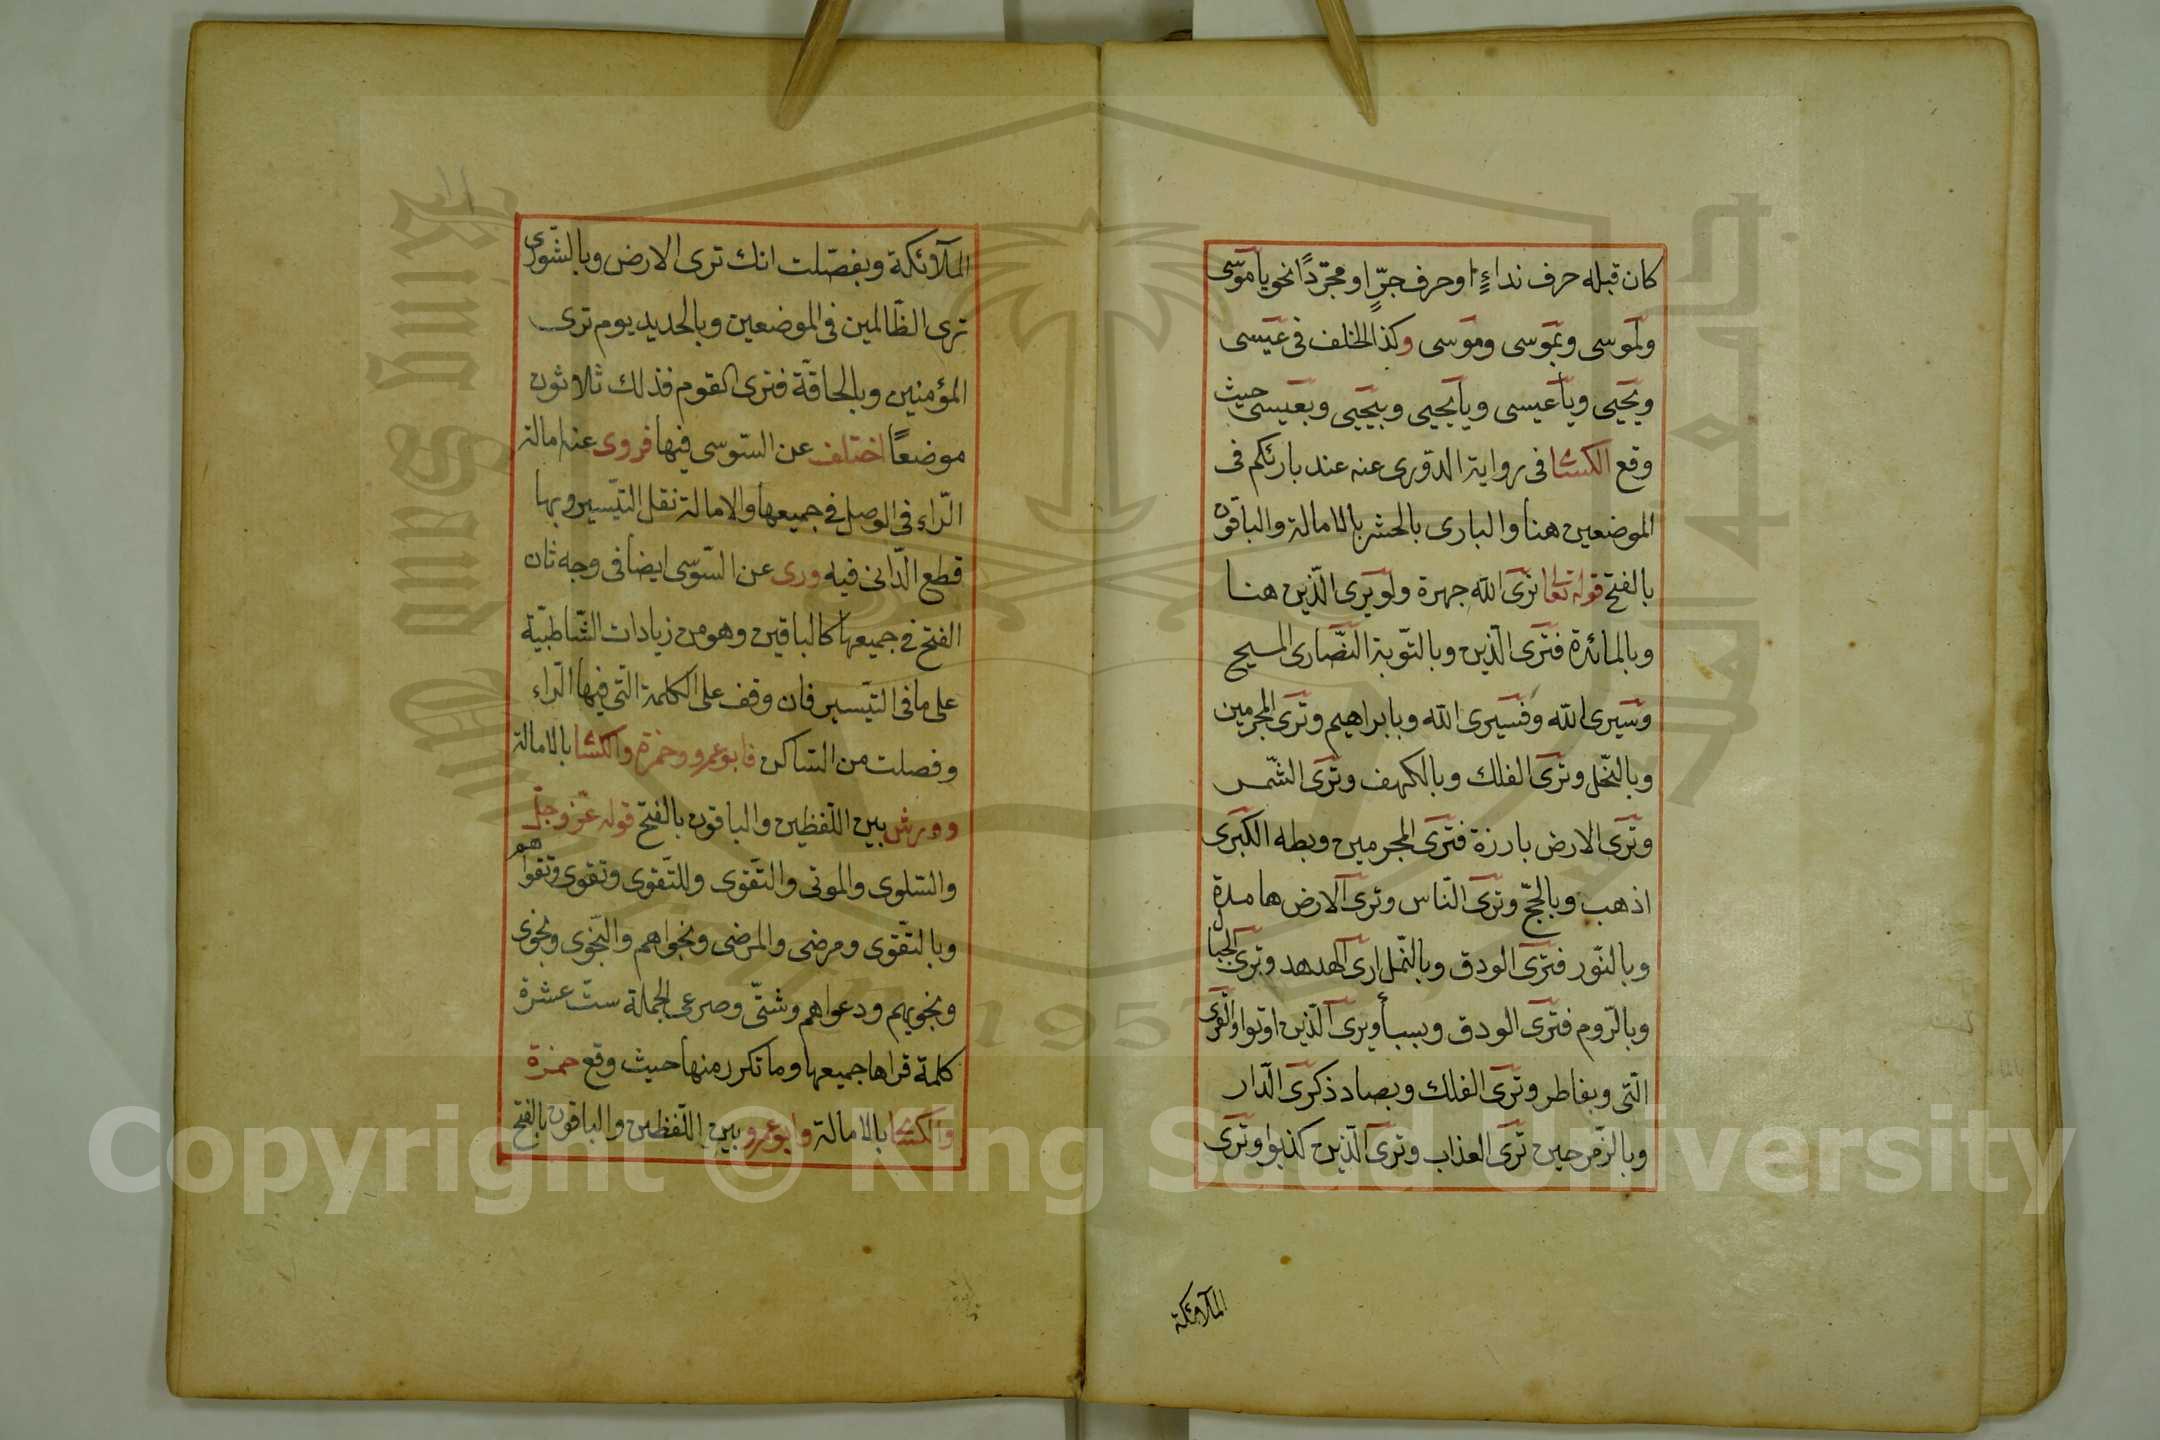 كان قبله حرف نداءٍ او حرف جرٍّ او مجرّدًا نحو يا موسى
ولموسى وبموسى وموسى وكذا الخلف فى عيسى
ويحيى ويا عيسى ويا يحيى وبيحيى وبعيسى حيث
وقع الكسائى فى رواية الدورى عنه عند بارئكم فى
الموضعين هنا والبارى بالحشر بالامالة والباقون
بالفتح قوله تعا نرى الله جهرة ولو يرى الّذين هنا
وبالمائدة فترى الّذين وبالتّوبة النّصارى المسيح
وسيرى الله وفسيرى الله وبابراهيم وترى المجرمين
وبالنّحل وترى الفلك وبالكهف وترى الشّمس
وترى الارض بارزة فترى المجرمين وبطه الكبرى
اذهب وبالحجّ وترى النّاس وترى الارض هامدة
وبالنّور فترى الودق وبالنّمل ارى الهدهد وترى الجبا
وبالرّوم فترى الودق وبسبأ ويرى الّذين اوتوا والقرى
الّتى وبفاطر وترى الفلك وبصاد ذكرى الدّار
وبالزّمر حين ترى العذاب وترى الّذين كذبوا وترى
الملائكة
الملائكة وبفصّلت انك ترى الارض وبالشّورى
ترى الظّالمين فى الموضعين وبالحديد يوم ترى
المؤمنين وبالحاقّة فترى القوم فذلك ثلاثون
موضعًا اختلف عن السّوسى فيها فروى عنه امالة
الرّاء فى الوصل فى جميعها والامالة نقل التّيسير وبها
قطع الدّانى فيه وروى عن السّوسى ايضا فى وجه ثان
الفتح فى جميعها كالباقين وهو من زيادات الشّاطبيّة
على ما فى التّيسير فان وقف على الكلمة الّتى فيها الرّاء
وفصلت من السّاكن فابو عمرو وحمزة والكسا بالامالة
وورش بين اللّفظين والباقون بالفتح قوله عزّ وجلّ
والسّلوى والموتى والتّقوى وللتّقوى وتقوى وتقواهم
وبالتّقوى ومرضى والمرضى ونجواهم والنّجوى ونجوى
ونجويهم ودعواهم وشتّى وصرعى الجملة ستّ عشرة
كلمة قراها جميعها وما تكرر منها حيث وقع حمزة
والكسا بالامالة وابو عمرو بين اللّفظين والباقون بالفتح
King Saud University
1957
Copyright © King Saud University